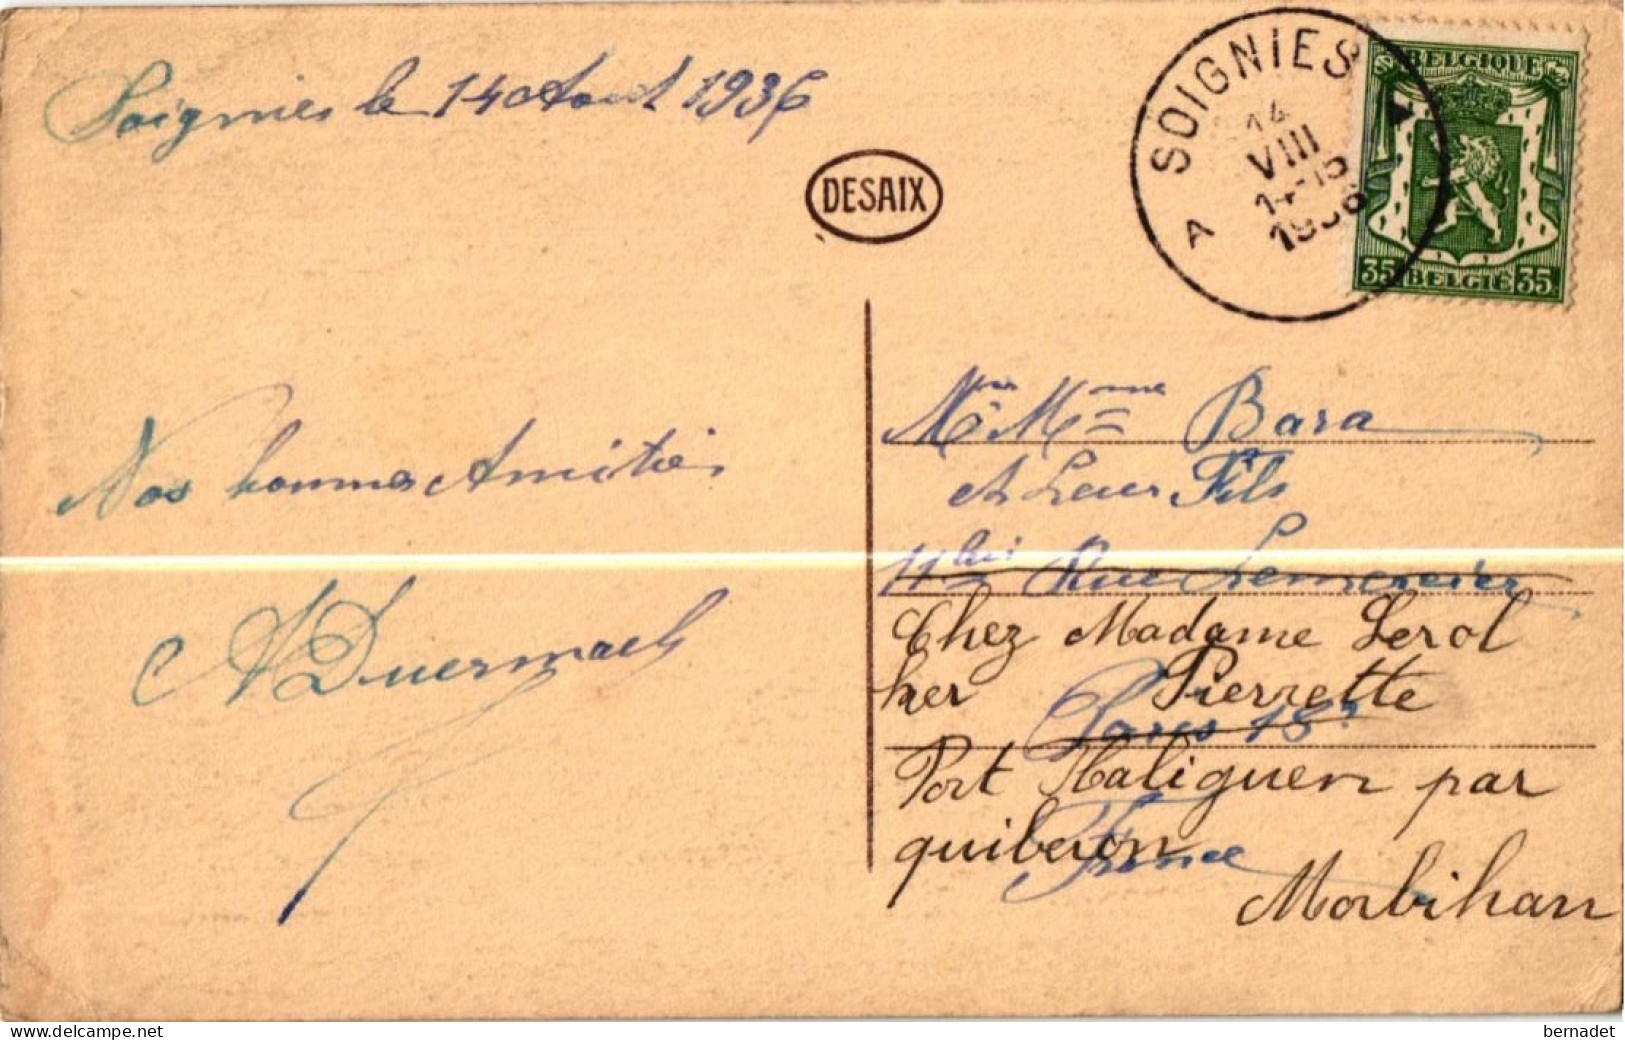 Soignies le 14 Aout 1936
DESAIX
SOIGNIES
A A
14
VIII
14-15
1936
BELGIQUE
35 BELGIË 35
Nos bonnes Amitiés
Mr Mme Bara
et Leur Fils
11bis Rue Lemercier
Chez Madame Lerol
her Pierrette
Paris 18e
Port Haliguen par
quiberon
France
Morbihan
www.delcampe.net
bernadet